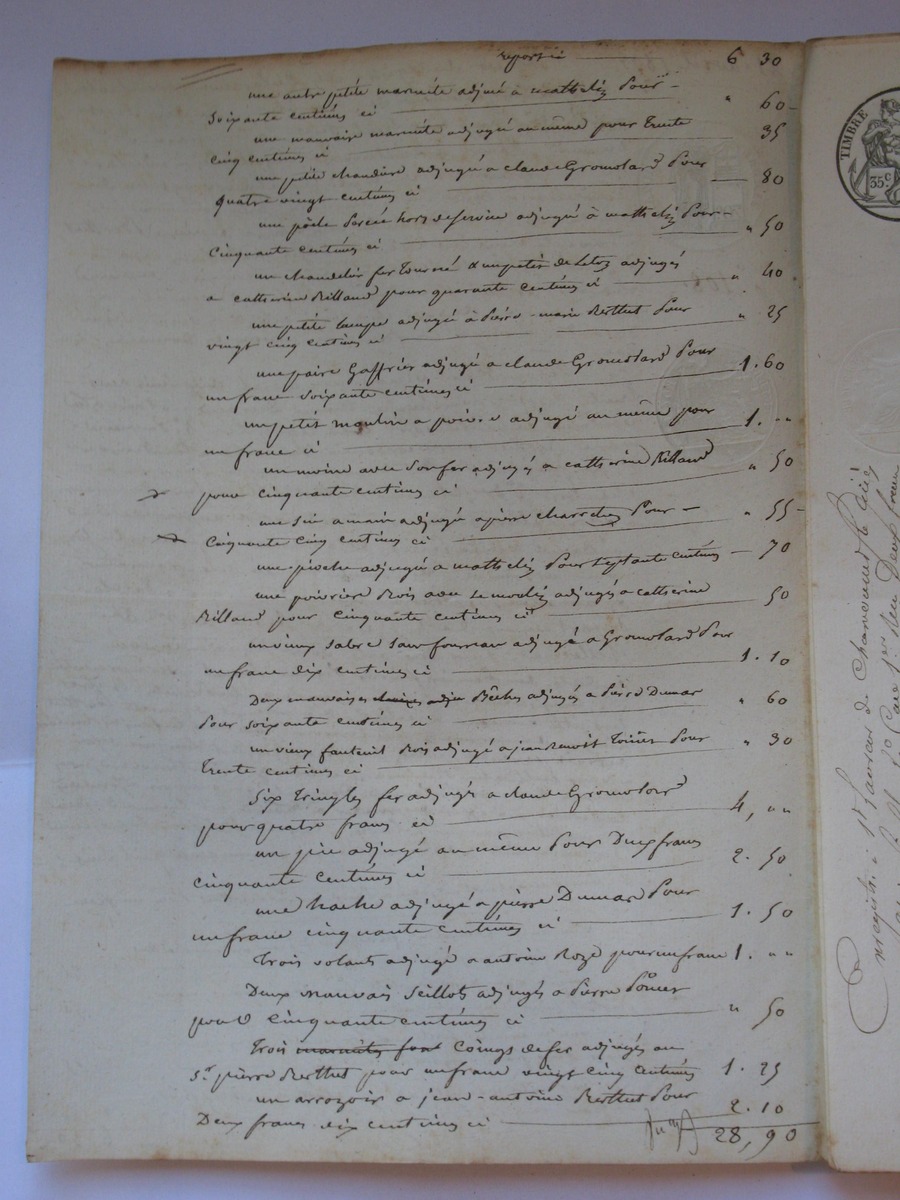 reporté 6 30
une autre petite marmite adjugé à mathelin Pour
soixante centimes ci " 60
une mauvaise marmite adjugé au même pour Trente
cinq centimes ci 35
une petite chaudière adjugé a claude Gromolard Pour
quatre vingt centimes ci 80
une pôele Percée hors de service adjugé à mathelin Pour
Cinquante centimes ci " 50
un chandelier fer Tourné & un petit adjugés
a catherine Rillaud pour quarante centimes ci " 40
une petite lampe adjugé à Pierre-marie Berthet Pour
vingt cinq centimes ci " 25
une paire Gaffrier adjugé a claude Gromolard Pour
un franc soixante centimes ci 1.60
un petit moulin a poivre adjugé au même pour
un franc ci 1. ""
un moine avec son fer adjugés a catherine Rillaud
pour cinquante centimes ci " 50
une sie a main adjugé a pierre Pour
Cinquante Cinq centimes ci " 55
une pioche adjugé a mathelin Pour septante centimes 70
une poivrier Bois avec le moulin adjugés a catherine
Rillaud pour cinquante centimes ci 50
un vieux sabre sans fourreau adjugé a Gromolard Pour
un franc dix centimes ci 1.10
Deux mauvaises Bêches adjugés a Pierre Dumas
Pour soixante centimes ci " 60
un vieux fauteuil Bois adjugé a jean Benoit Pour
Trente centimes ci " 30
Six Tringles fer adjugés a claude Gromolard
pour quatre francs ci 4, ""
un pic adjugé au même Pour Deux francs
cinquante centimes ci 2. 50
une hache adjugé a pierre Dumas Pour
un franc cinquante centimes ci 1. 50
Trois volants adjugé a antoine Roze pour un franc 1. ""
Deux mauvais Seillots adjugés a Pierre
pour cinquante centimes ci " 50
Trois marmites font Coings de fer adjugés au
Sr. pierre Berthet pour un franc vingt cinq centimes 1. 25
un arrozoir a jean-antoine Berthet Pour
Deux francs dix centimes ci 2. 10
28, 90
TIMBRE
35 c.